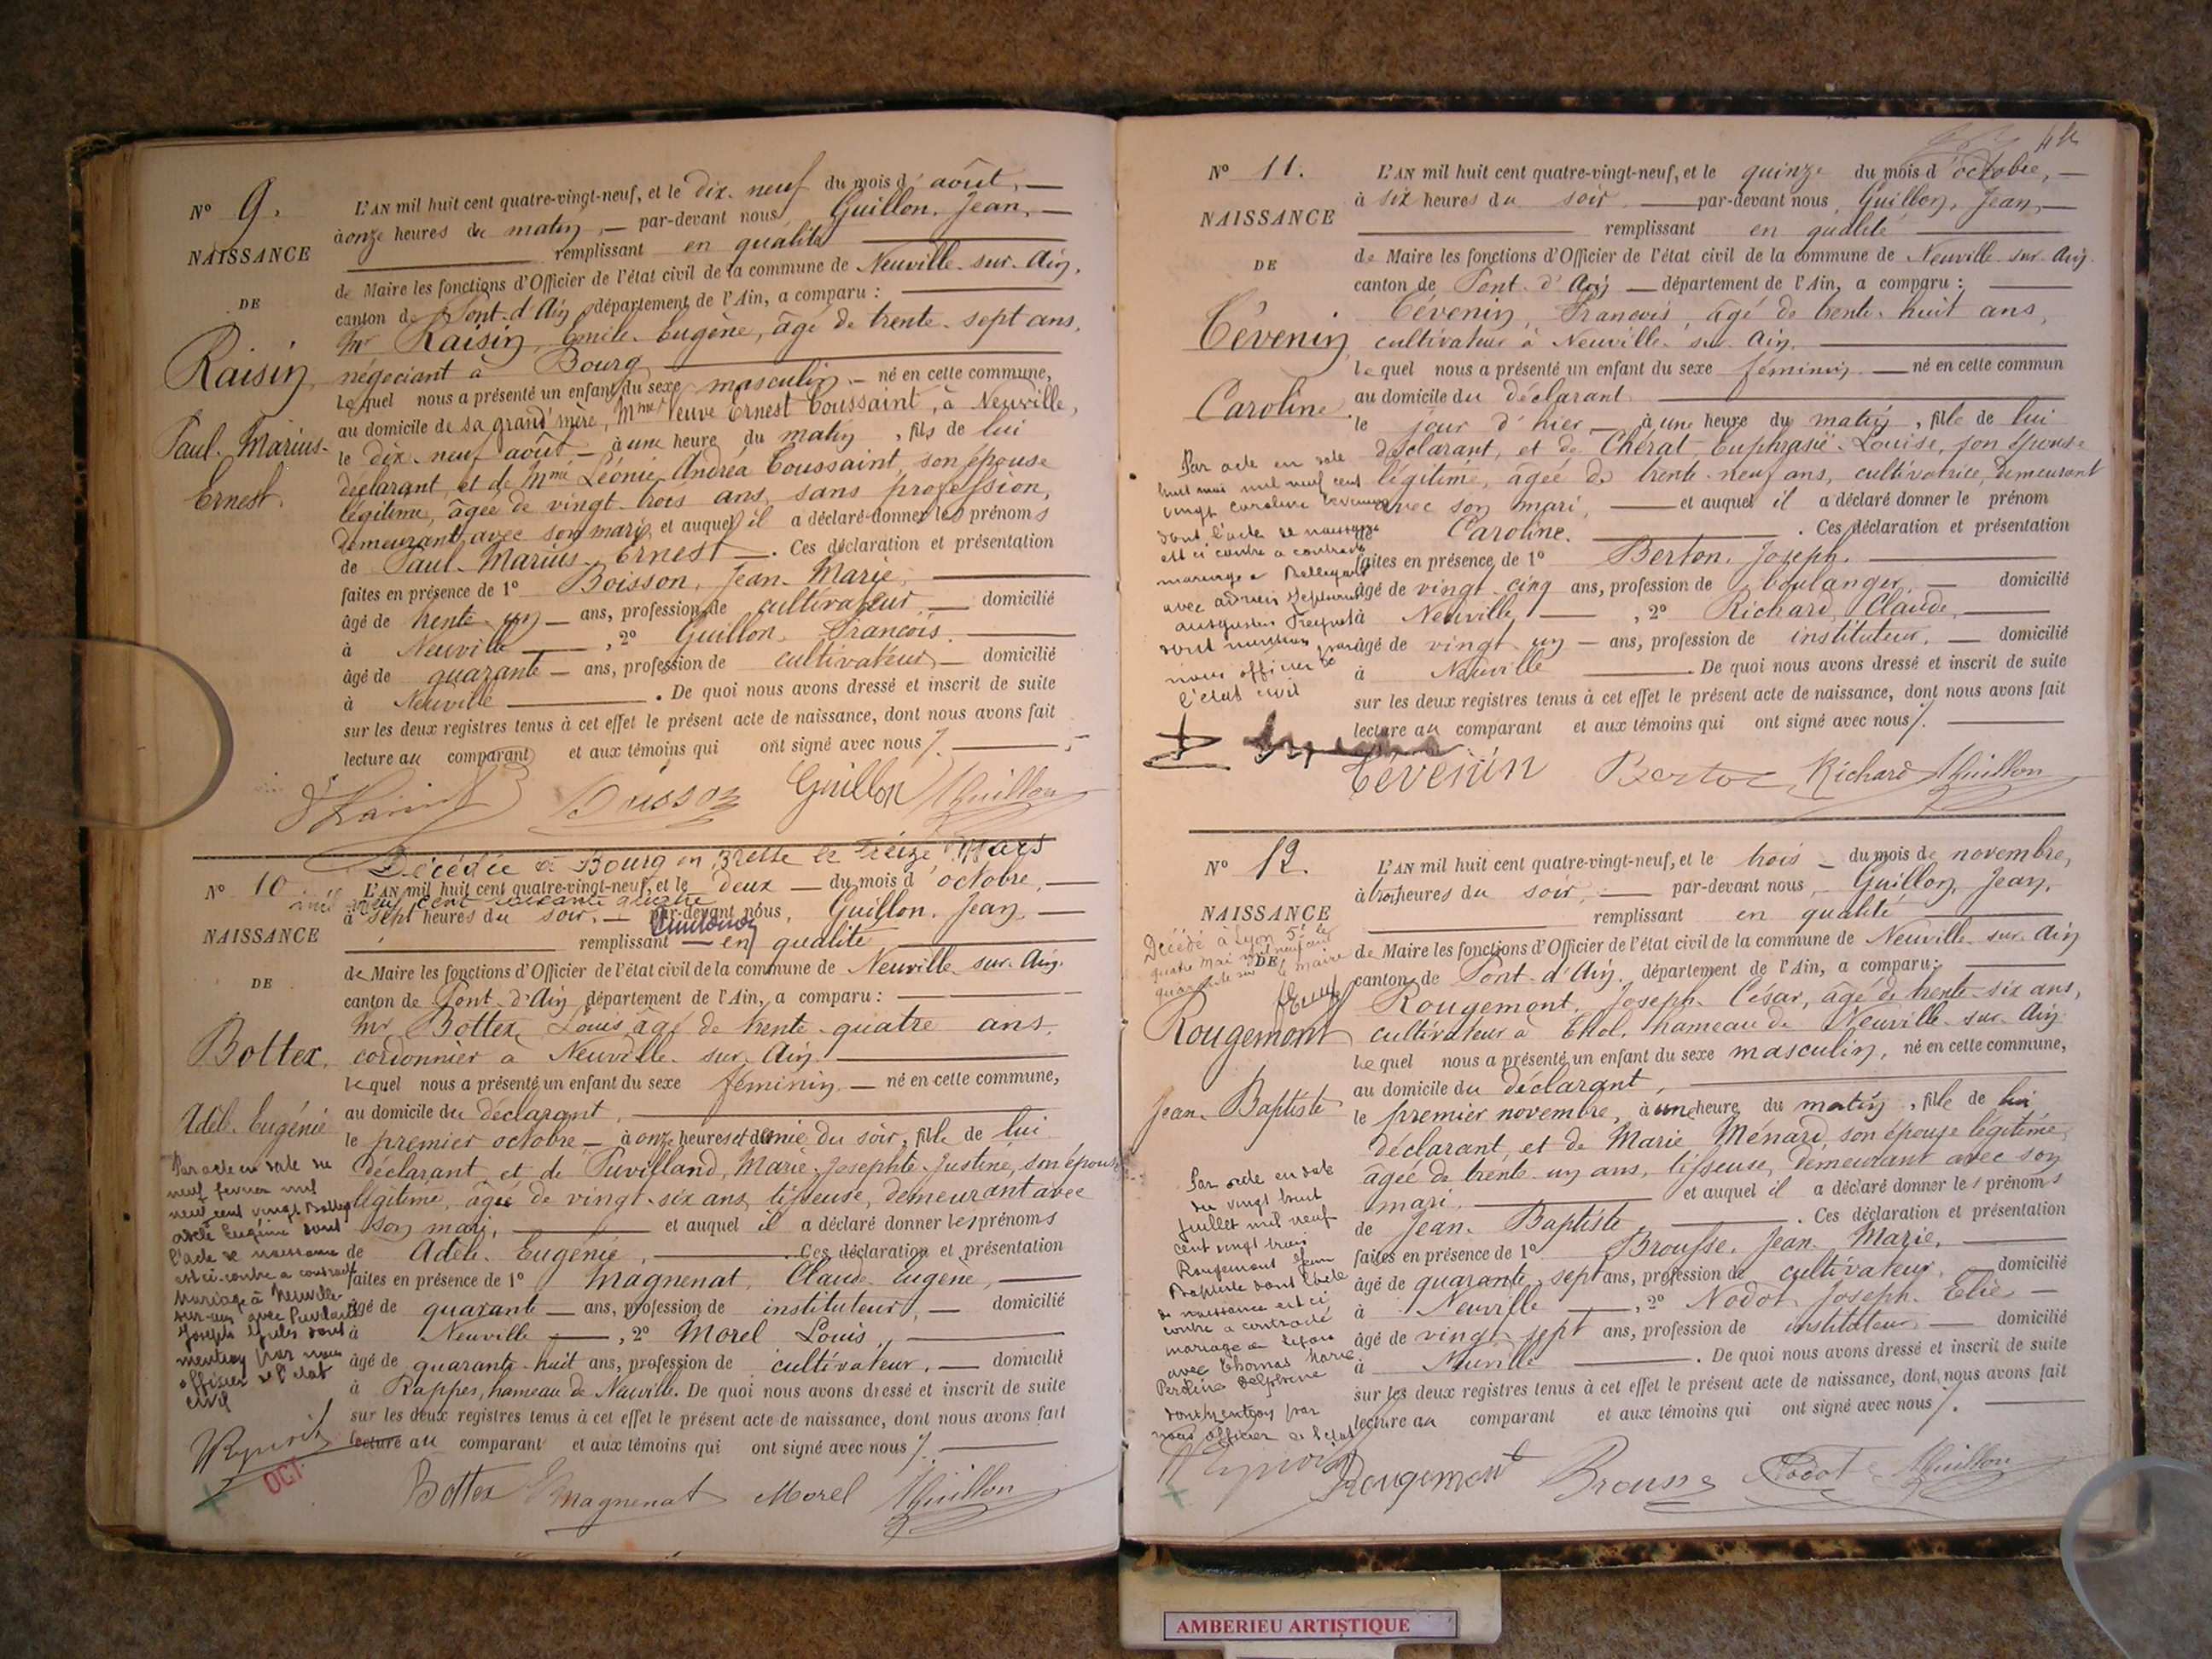 N° 9.
NAISSANCE
DE
Raisin
Paul-Marius-
Ernest.
L'AN mil huit cent quatre-vingt-neuf, et le dix-neuf du mois d'août,
à onze heures du matin, par-devant nous Guillon, Jean,
remplissant en qualité
de Maire les fonctions d'Officier de l'état civil de la commune de Neuville-sur-Ain,
canton de Pont-d'Ain département de l'Ain, a comparu :
Mr Raisin, Emile-Eugène, âgé de trente-sept ans,
négociant à Bourg
lequel nous a présenté un enfant du sexe masculin né en cette commune,
au domicile de sa grand'mère, Mme Veuve Ernest Toussaint, à Neuville,
le dix-neuf août à une heure du matin, fils de lui
déclarant, et de Mme Léonie Andréa Toussaint, son épouse
légitime, âgée de vingt-trois ans, sans profession,
demeurant avec son mari, et auquel il a déclaré donner les prénoms
de Paul-Marius-Ernest. Ces déclaration et présentation
faites en présence de 1° Boisson, Jean-Marie,
âgé de trente-un ans, profession de cultivateur, domicilié
à Neuville, 2° Guillon, François.
âgé de quarante ans, profession de cultivateur domicilié
à Neuville. De quoi nous avons dressé et inscrit de suite
sur les deux registres tenus à cet effet le présent acte de naissance, dont nous avons fait
lecture au comparant et aux témoins qui ont signé avec nous.
Boisson Guillon JGuillon
Décédée à Bourg en Bresse le treize Mars
mil neuf cent soixante quatre
N° 10
NAISSANCE
DE
Bottex,
Adèle-Eugénie
L'AN mil huit cent quatre-vingt-neuf, et le deux du mois d'octobre,
à sept heures du soir, par-devant nous, Guillon, Jean,
remplissant en qualité
de Maire les fonctions d'Officier de l'état civil de la commune de Neuville-sur-Ain.
canton de Pont-d'Ain département de l'Ain, a comparu :
Mr Bottex, Louis, âgé de trente-quatre ans,
cordonnier à Neuville-sur-Ain.
lequel nous a présenté un enfant du sexe féminin né en cette commune,
au domicile du déclarant,
le premier octobre à onze heures et demie du soir, fille de lui
déclarant et de Puvilland, Marie-Josephte-Justine, son épouse
légitime, âgée de vingt-six ans, tisseuse, demeurant avec
son mari, et auquel il a déclaré donner les prénoms
de Adèle-Eugénie, Ces déclaration et présentation
faites en présence de 1° Magnenat, Claude-Eugène,
âgé de quarante ans, profession de instituteur, domicilié
à Neuville, 2° Morel Louis,
âgé de quarante-huit ans, profession de cultivateur, domicilié
à Rappes, hameau de Neuville. De quoi nous avons dressé et inscrit de suite
sur les deux registres tenus à cet effet le présent acte de naissance, dont nous avons fait
lecture au comparant et aux témoins qui ont signé avec nous.
Par acte en date du
neuf février mil
neuf cent vingt Bottex
adèle Eugénie dont
l'acte de naissance
est ci-contre a contracté
mariage à Neuville
sur-ain avec
Joseph Jules dont
mention par nous
officier de l'état
civil
OCT
Bottex Magnenat Morel JGuillon
N° 11.
NAISSANCE
DE
Tévenin
Caroline.
L'AN mil huit cent quatre-vingt-neuf, et le quinze du mois d'octobre,
à six heures du soir par-devant nous, Guillon, Jean,
remplissant en qualité
de Maire les fonctions d'Officier de l'état civil de la commune de Neuville-sur-Ain.
canton de Pont-d'Ain département de l'Ain, a comparu :
Tévenin, François, âgé de trente-huit ans,
cultivateur à Neuville-sur-Ain.
lequel nous a présenté un enfant du sexe féminin né en cette commun
au domicile du déclarant
le jour d'hier à une heure du matin, fille de lui
déclarant, et de Chérat, Euphrasie-Louise, son épouse
légitime, âgée de trente-neuf ans, cultivatrice, demeurant
avec son mari, et auquel il a déclaré donner le prénom
de Caroline. Ces déclaration et présentation
faites en présence de 1° Berton, Joseph.
âgé de vingt-cinq ans, profession de boulanger, domicilié
à Neuville, 2° Richard, Claude,
âgé de vingt-un ans, profession de instituteur, domicilié
à Neuville. De quoi nous avons dressé et inscrit de suite
sur les deux registres tenus à cet effet le présent acte de naissance, dont nous avons fait
lecture au comparant et aux témoins qui ont signé avec nous.
Par acte en date
huit mai mil neuf cent
vingt caroline tevenin
dont l'acte de naissance
est ci contre a contracté
mariage à Bellegarde
avec adrien
augustin
dont mention par
nous officier de
l'état civil
Tévenin Berton Richard JGuillon
N° 12.
NAISSANCE
DE
Décédé à Lyon 5e le
quatre mai mil neuf cent
le maire
Rougemont
Jean-Baptiste
L'AN mil huit cent quatre-vingt-neuf, et le trois du mois de novembre,
à trois heures du soir, par-devant nous, Guillon, Jean,
remplissant en qualité
de Maire les fonctions d'Officier de l'état civil de la commune de Neuville-sur-Ain
canton de Pont-d'Ain, département de l'Ain, a comparu:
Rougemont, Joseph-César, âgé de trente-six ans,
cultivateur à Thol, hameau de Neuville-sur-Ain
lequel nous a présenté un enfant du sexe masculin, né en cette commune,
au domicile du déclarant,
le premier novembre, à une heure du matin, fils de lui
déclarant, et de Marie Ménard, son épouse légitime,
âgée de trente-un ans, tisseuse, demeurant avec son
mari. et auquel il a déclaré donner les prénoms
de Jean-Baptiste. Ces déclaration et présentation
faites en présence de 1° Brousse, Jean-Marie,
âgé de quarante-sept ans, profession de cultivateur, domicilié
à Neuville, 2° Nodot, Joseph-Elie,
âgé de vingt-sept ans, profession de instituteur domicilié
à Neuville. De quoi nous avons dressé et inscrit de suite
sur les deux registres tenus à cet effet le présent acte de naissance, dont nous avons fait
lecture au comparant et aux témoins qui ont signé avec nous.
Par acte en date
du vingt huit
juillet mil neuf
cent vingt trois
Rougemont Jean
Baptiste dont l'acte
de naissance est ci
contre a contracté
mariage à
avec Thomas Marie
Delphine
dont mention par
nous officier de l'état
Rougemont Brousse Nodot JGuillon
AMBERIEU ARTISTIQUE